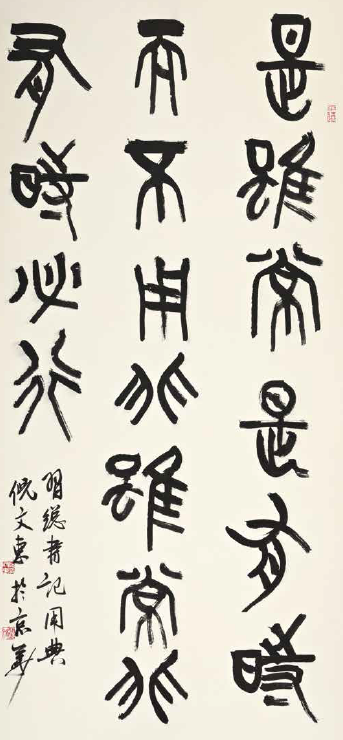 是雖常是有時
而不用非雖常非
有時必行
習總書記用典
倪文東於京華